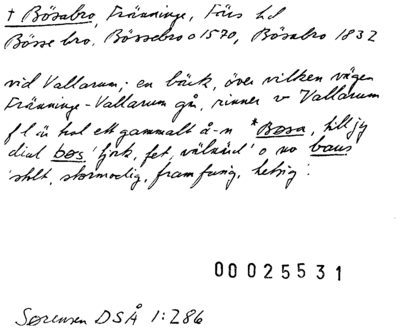 † Bösabro, Fränninge, Färs hd
Bösse bro. Bössebro o 1570, Bösabro 1832
vid Vallarum; en bäck, över vilken vägen
Fränninge-Vallarum går, rinner v Vallarum
f l ä hul ett gammalt å-n *Bosa, till jy
dial bøs 'tjock, fet, välnärd' o no baus
'stolt, stormodig, framfusig, hetsig'.
00025531
Sørensen DSÅ 1:286